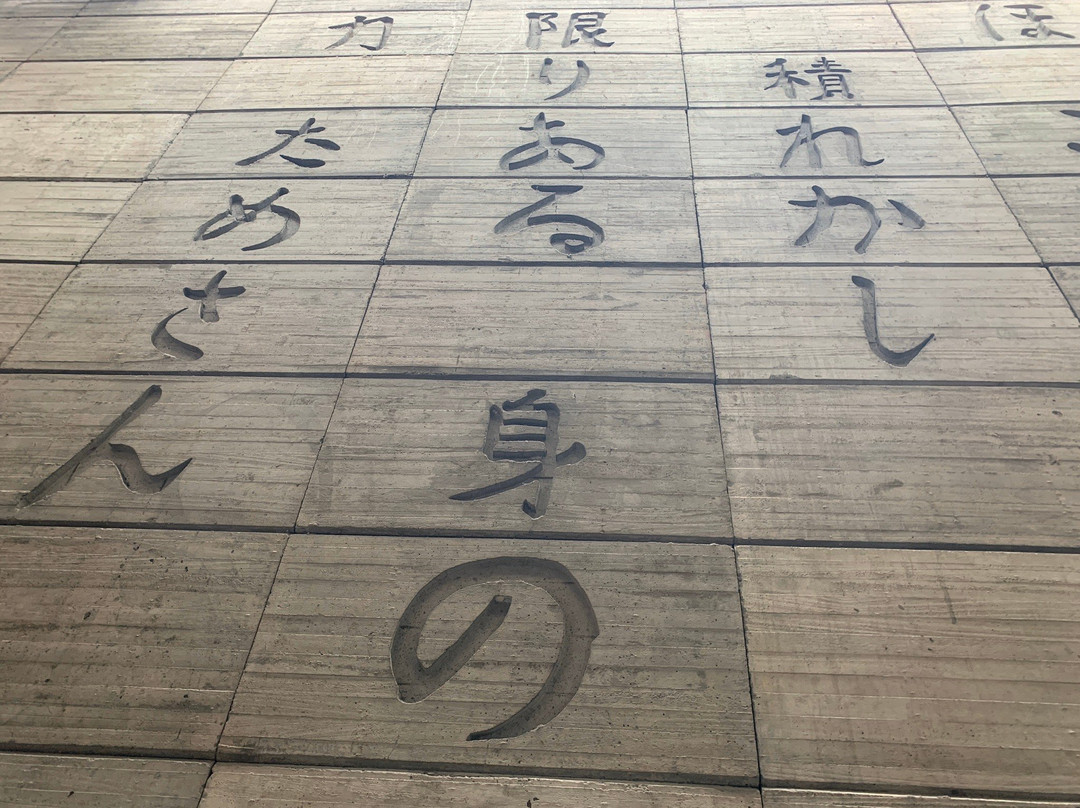 ほ
積れかし
限りある身の
力ためさん